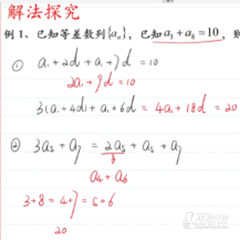 解法探究
例1、已知等差数列{aₙ}，已知a₃+a₈=10，则
① a₁+2d+a₁+7d=10
2a₁+9d=10
3(a₁+4d)+a₁+6d=4a₁+18d=20
② 3a₅+a₇=2a₅+a₅+a₇
a₄+a₆
3+8=4+7=5+6
20